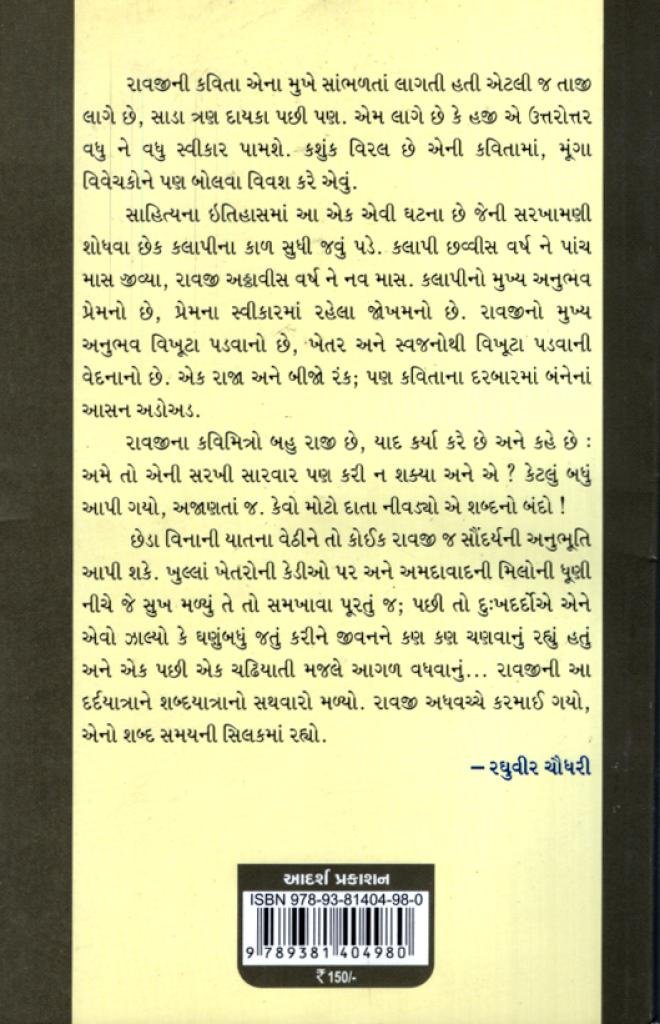 રાવજીની કવિતા એના મુખે સાંભળતાં લાગતી હતી એટલી જ તાજી
લાગે છે, સાડા ત્રણ દાયકા પછી પણ. એમ લાગે છે કે હજી એ ઉત્તરોત્તર
વધુ ને વધુ સ્વીકાર પામશે. કશુંક વિરલ છે એની કવિતામાં, મૂંગા
વિવેચકોને પણ બોલવા વિવશ કરે એવું.
સાહિત્યના ઇતિહાસમાં આ એક એવી ઘટના છે જેની સરખામણી
શોધવા છેક કલાપીના કાળ સુધી જવું પડે. કલાપી છવ્વીસ વર્ષ ને પાંચ
માસ જીવ્યા, રાવજી અઠ્ઠાવીસ વર્ષ ને નવ માસ. કલાપીનો મુખ્ય અનુભવ
પ્રેમનો છે, પ્રેમના સ્વીકારમાં રહેલા જોખમનો છે. રાવજીનો મુખ્ય
અનુભવ વિખૂટા પડવાનો છે, ખેતર અને સ્વજનોથી વિખૂટા પડવાની
વેદનાનો છે. એક રાજા અને બીજો રંક; પણ કવિતાના દરબારમાં બંનેનાં
આસન અડોઅડ.
રાવજીના કવિમિત્રો બહુ રાજી છે, યાદ કર્યા કરે છે અને કહે છે :
અમે તો એની સરખી સારવાર પણ કરી ન શક્યા અને એ ? કેટલું બધું
આપી ગયો, અજાણતાં જ. કેવો મોટો દાતા નીવડ્યો એ શબ્દનો બંદો !
છેડા વિનાની યાતના વેઠીને તો કોઈક રાવજી જ સૌંદર્યની અનુભૂતિ
આપી શકે. ખુલ્લાં ખેતરોની કેડીઓ પર અને અમદાવાદની મિલોની ધૂણી
નીચે જે સુખ મળ્યું તે તો સમખાવા પૂરતું જ; પછી તો દુઃખદર્દોએ એને
એવો ઝાલ્યો કે ઘણુંબધું જતું કરીને જીવનને કણ કણ ચણવાનું રહ્યું હતું
અને એક પછી એક ચઢિયાતી મજલે આગળ વધવાનું... રાવજીની આ
દર્દયાત્રાને શબ્દયાત્રાનો સથવારો મળ્યો. રાવજી અધવચ્ચે કરમાઈ ગયો,
એનો શબ્દ સમયની સિલકમાં રહ્યો.
– રઘુવીર ચૌધરી
આદર્શ પ્રકાશન
ISBN 978-93-81404-98-0
9 789381 404980
₹ 150/-